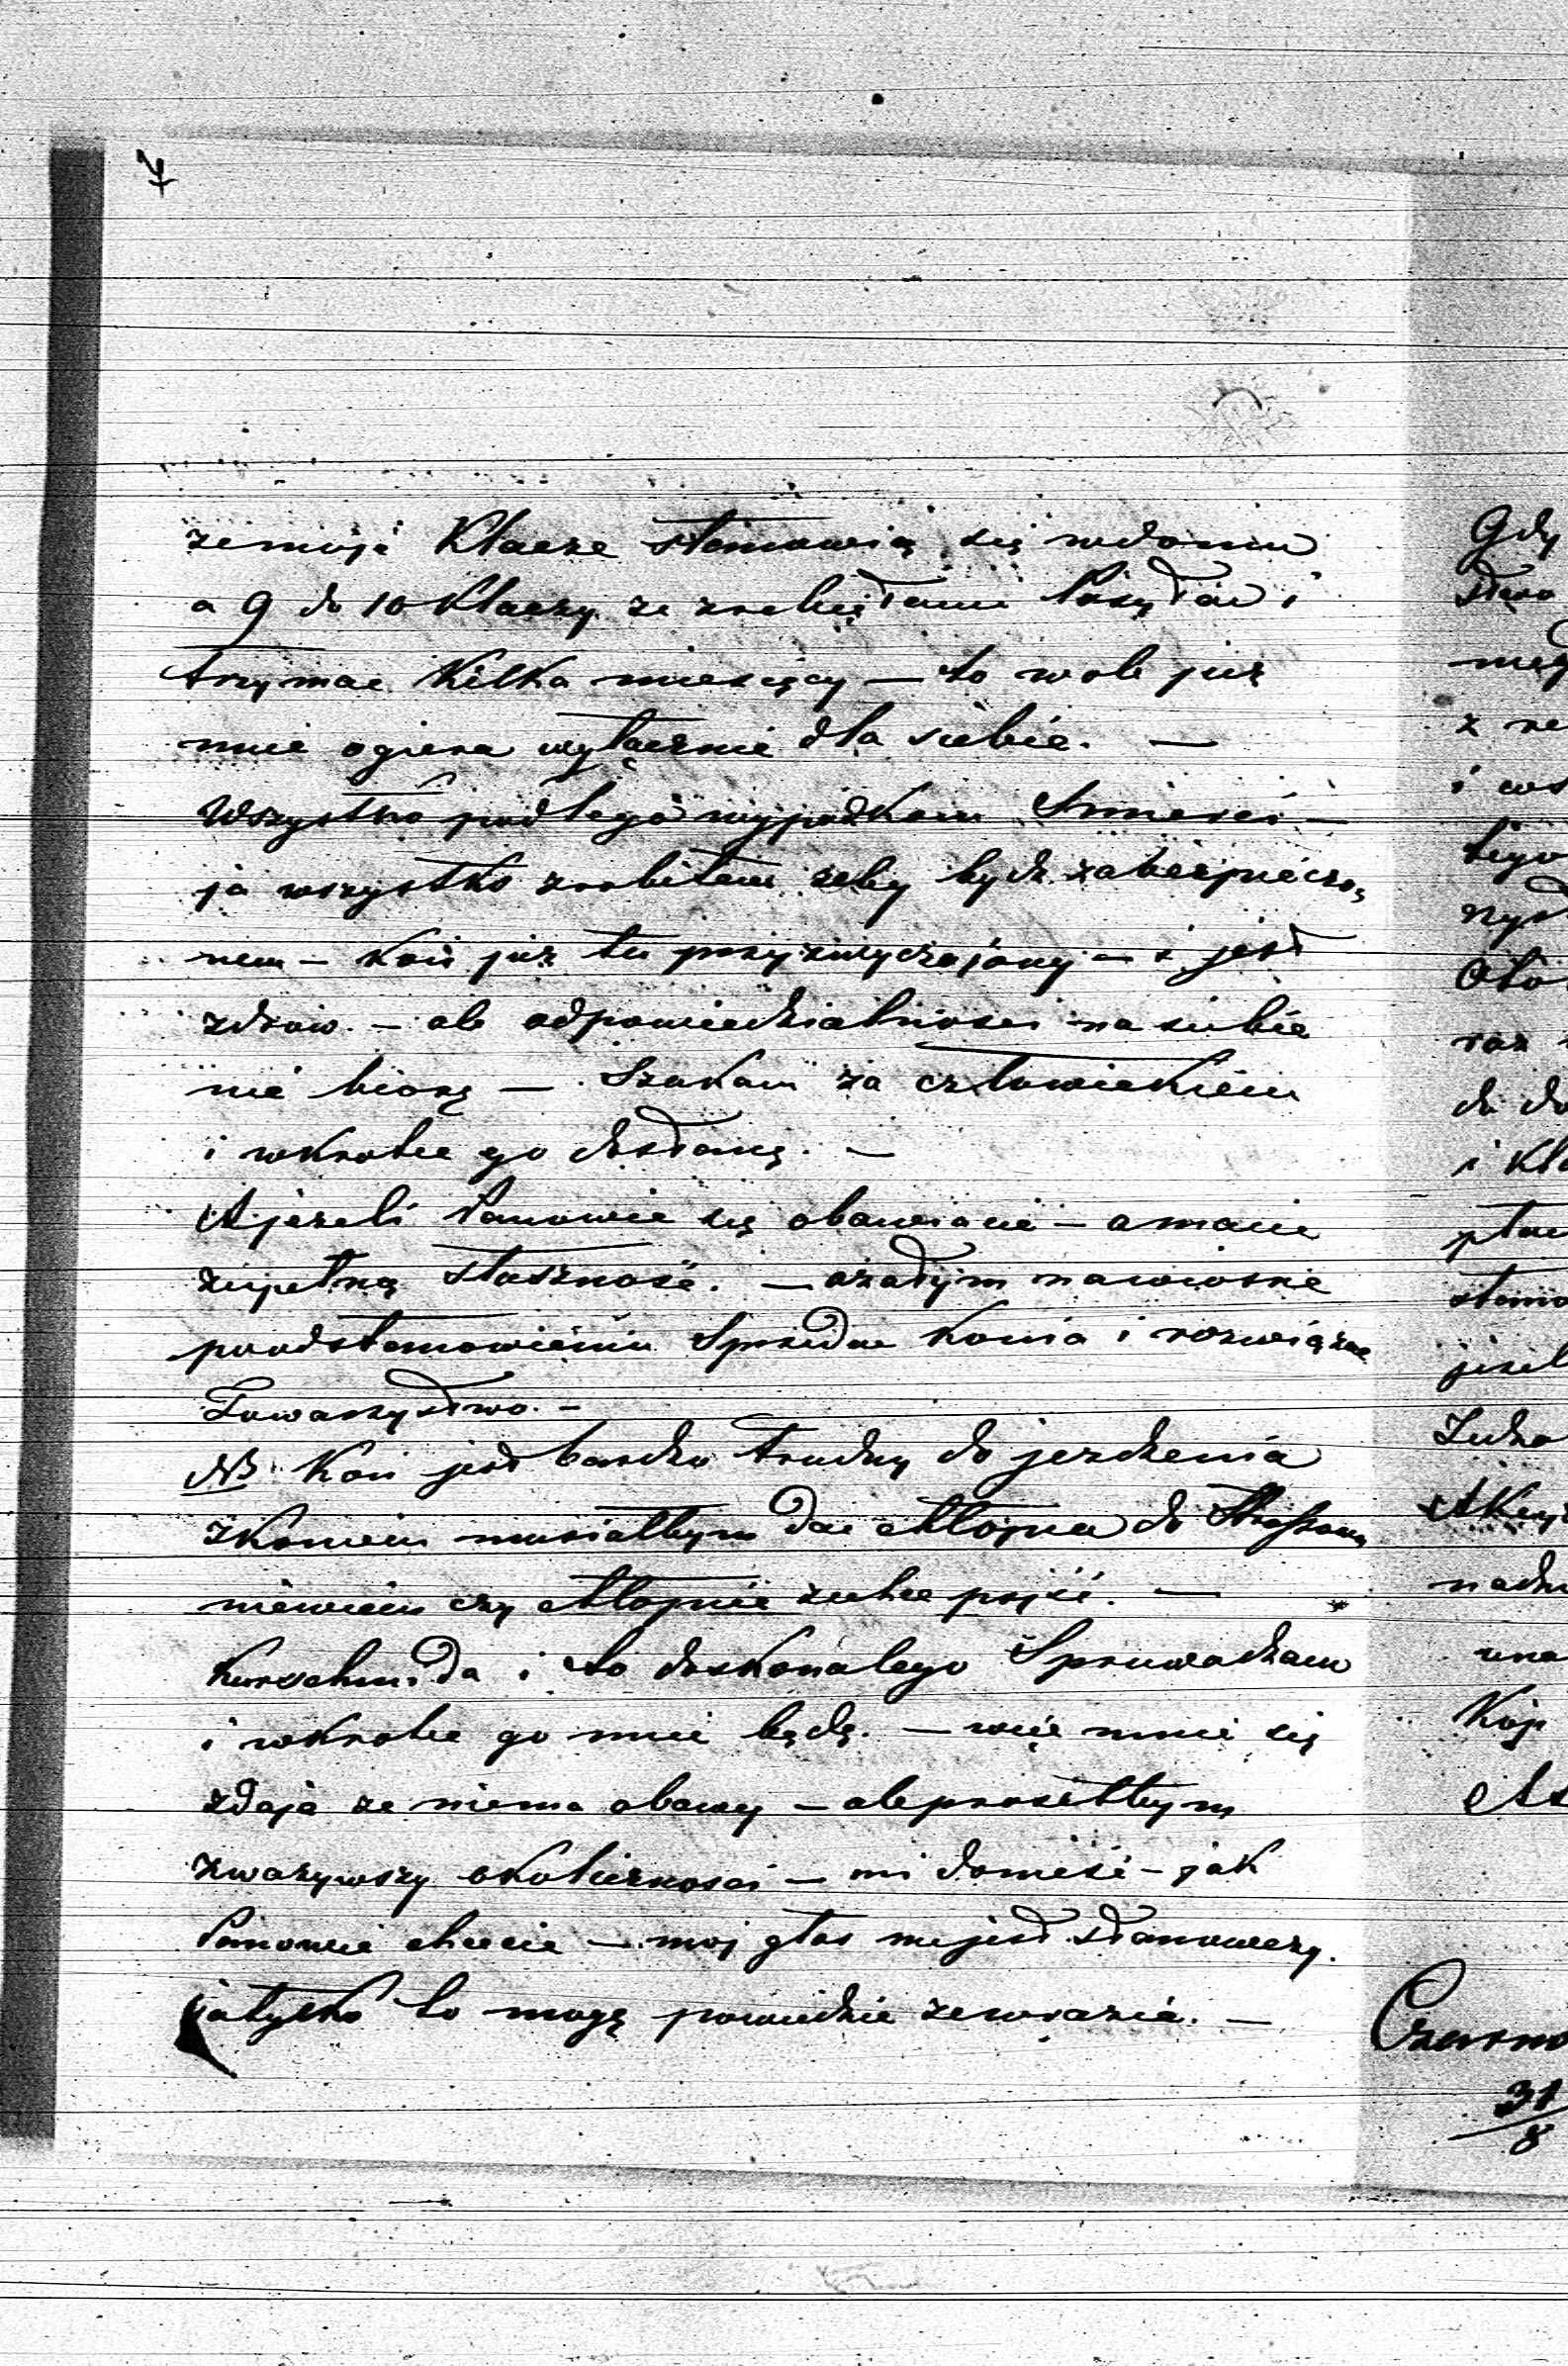 7
że moje Klacze stanowią się w domu
a 9 do 10 Klaczy ze zrebiętami Posyłać i
trzymac Kilka miesięcy — to wole już
mieć ogiera wyłącznie dla siebie. —
Wszystko podlega wypadkom Smierci —
ja wszystko zrobiłem żeby bydz zabezpieczo,
nem — Koń już tu przyzwyczajony — i jest
zdrow. — ale odpowiedzialności na siebie
nie biorę — Szukam za człowiekiem
i wkrotce go dostanę. —
A jezeli Panowie się obawiacie — a macie
zupełną słuszność. — a zatym na wiosnie
po odstanowieniu Sprzedac Konia i rozwiązac
Towarzystwo. —
NB. Koń jest bardzo trudny do jezdzenia
z Koniem musiałbym dac chłopca do
niewiem czy chłopiec zechce pojść. —
Kurschmida i to doskonałego Sprowadzam
i wkrotce go miec będę. — więc mnie się
zdaje ze niema obawy — ale prosiłbym
zwazywszy okoliczności — mi donieść — jak
Panowie chcecie — moj głos niejest stanowczy.
ja tylko to mogę powiedzieć ze wrazie. —
Gdy
i ws
raz
do do
i Kl
Czarno
31
8